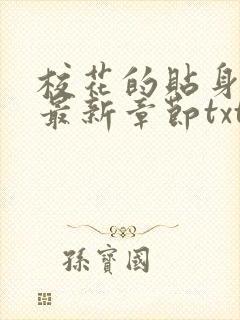 校花的貼身
最新章節txt
孫寶國